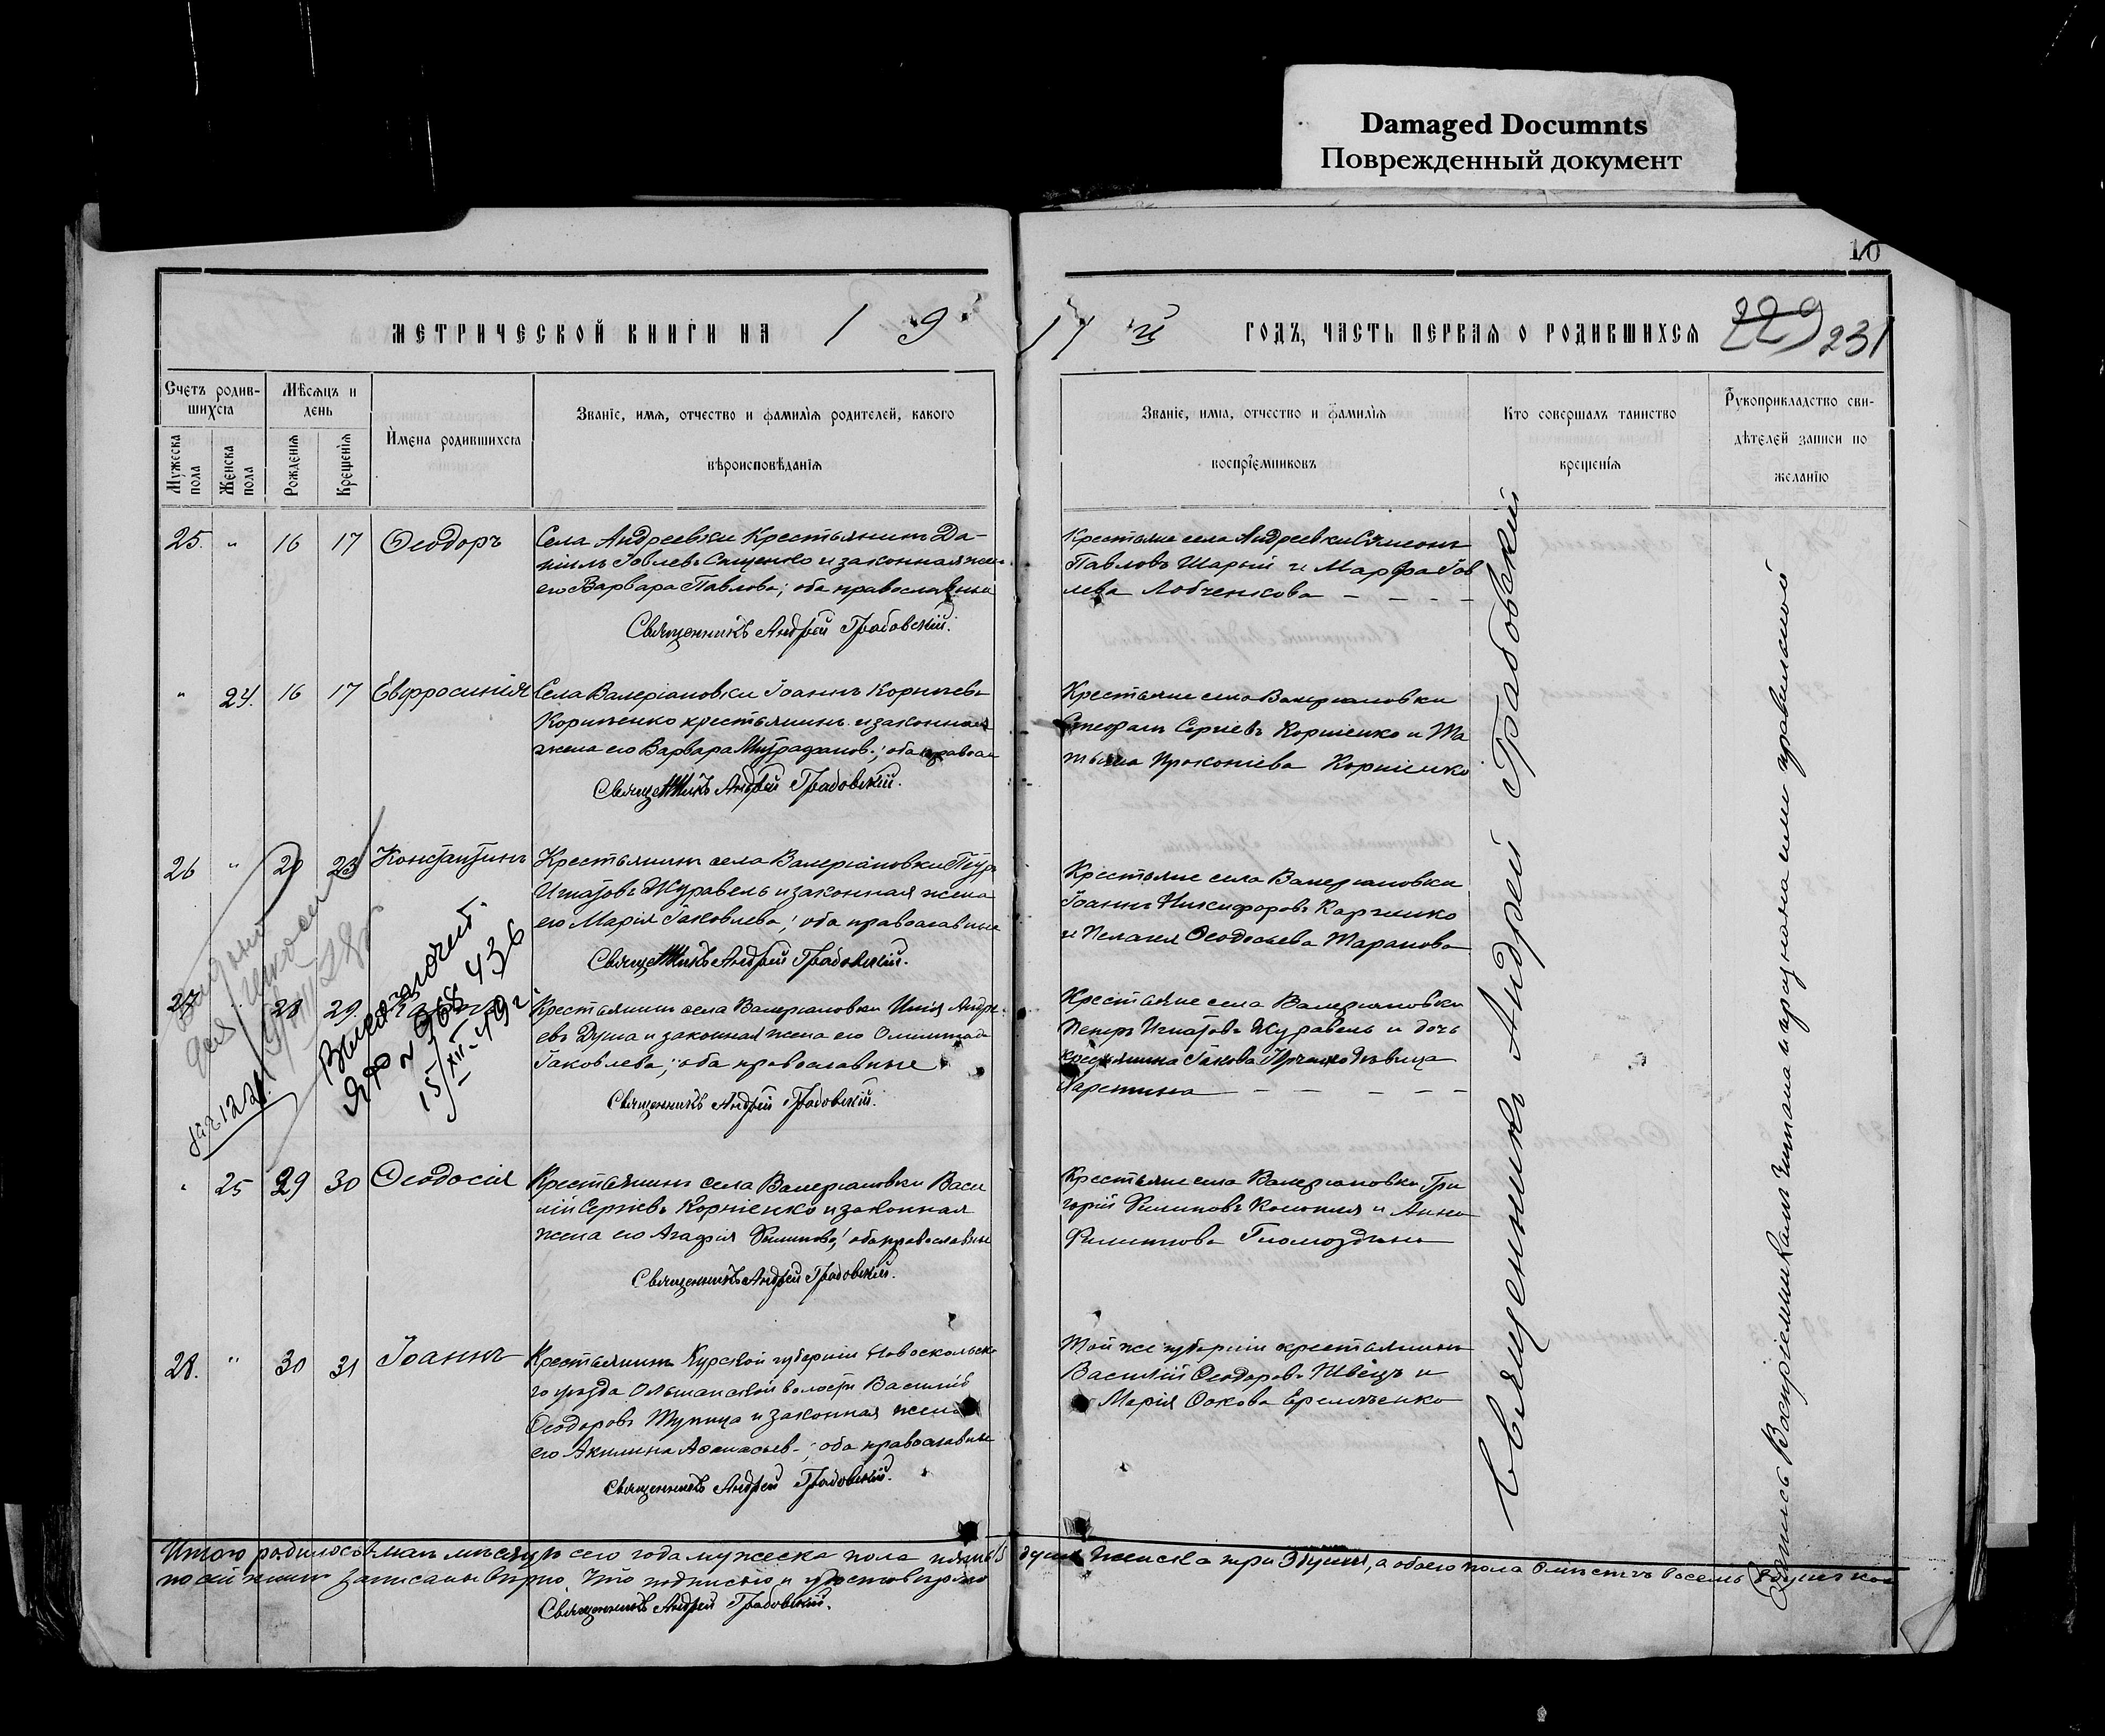 Damaged Documnts
Поврежденный документ
10
МЕТРИЧЕСКОЙ КНИГИ НА 19
17 й ГОДЪ, ЧАСТЬ ПЕРВАЯ О РОДИВШИХСЯ 229 231
Счетъ родив-
шихся
Мѣсяцъ и
день
Мужеска пола
Женска пола
Рожденія
Крещенія
Имена родившихся
Званіе, имя, отчество и фамилія родителей, какого
вѣроисповѣданія
Званіе, имя, отчество и фамилія
воспріемниковъ
Кто совершалъ таинство
крещенія
Рукоприкладство сви-
дѣтелей записи по
желанію
25. " 16 17 Ѳеодоръ
Села Андреевки Крестьянинъ Да-
ніилъ Іовлевъ Сащенко и законная жена
его Варвара Павлова; оба православные
Священникъ Андрей Грабовскій.
Крестьяне села Андреевки Симеонъ
Павловъ Шарый и Марѳа Іов
лева Лобченкова
" 24. 16 17 Евфросинія
Села Валеріановки Іоаннъ Корніевъ
Корніенко крестьянинъ и законная
жена его Варвара Митрофанов.; оба правосл
Священникъ Андрей Грабовскій.
Крестьяне села Валеріановки
Стефанъ Сергіевъ Корніенко и Та
тьяна Прокопіева Корніенко
26 " 20 23 Константинъ
Крестьянинъ села Валеріановки Петръ
Игнатовъ Журавель и законная жена
его Марія Іаковлева; оба православные
Священникъ Андрей Грабовскій.
Крестьяне села Валеріановки
Іоаннъ Никифоровъ Карпенко
и Пелагея Ѳеодосьева Таранова
27 28 29.
Крестьянинъ села Валеріановки Илія Андре-
евъ Душа и законная жена его Олимпіада
Іаковлева; оба православные
Священникъ Андрей Грабовскій.
Крестьяне села Валеріановки
Петръ Игнатовъ Журавель и дочь
крестьянина Іакова дѣвица
Харитина
ЯЮ № 968436
15/XII-49 г.
" 25 29 30 Ѳеодосія
Крестьянинъ села Валеріановки Васи
лій Сергіевъ Корніенко и законная
жена его Агафія Филипова; оба православные
Священникъ Андрей Грабовскій.
Крестьяне села Валеріановки Гри
горій Филиповъ Конопля и Анна
Филиппова
28. " 30 31 Іоаннъ
Крестьянинъ Курской губерніи Новооскольска
го уѣзда Ольшанской волости Василій
Ѳеодоровъ Тупица и законная жена
его Акилина Аѳанасьев.; оба православные
Священникъ Андрей Грабовскій.
Той же губерніи крестьянинъ
Василій Ѳеодоровъ Швецъ и
Марія Еремченко
Священникъ Андрей Грабовскій
Запись Воспріемникамъ читана и признана ими правильной
Итого родилось въ маѣ мѣсяцѣ сего года мужеска пола пять 5 душъ женска три 3 души, а обоего пола вмѣстѣ восемь 8 душъ кои
по сей книгѣ записаны вѣрно, что подписью и удостовѣряю
Священникъ Андрей Грабовскій.